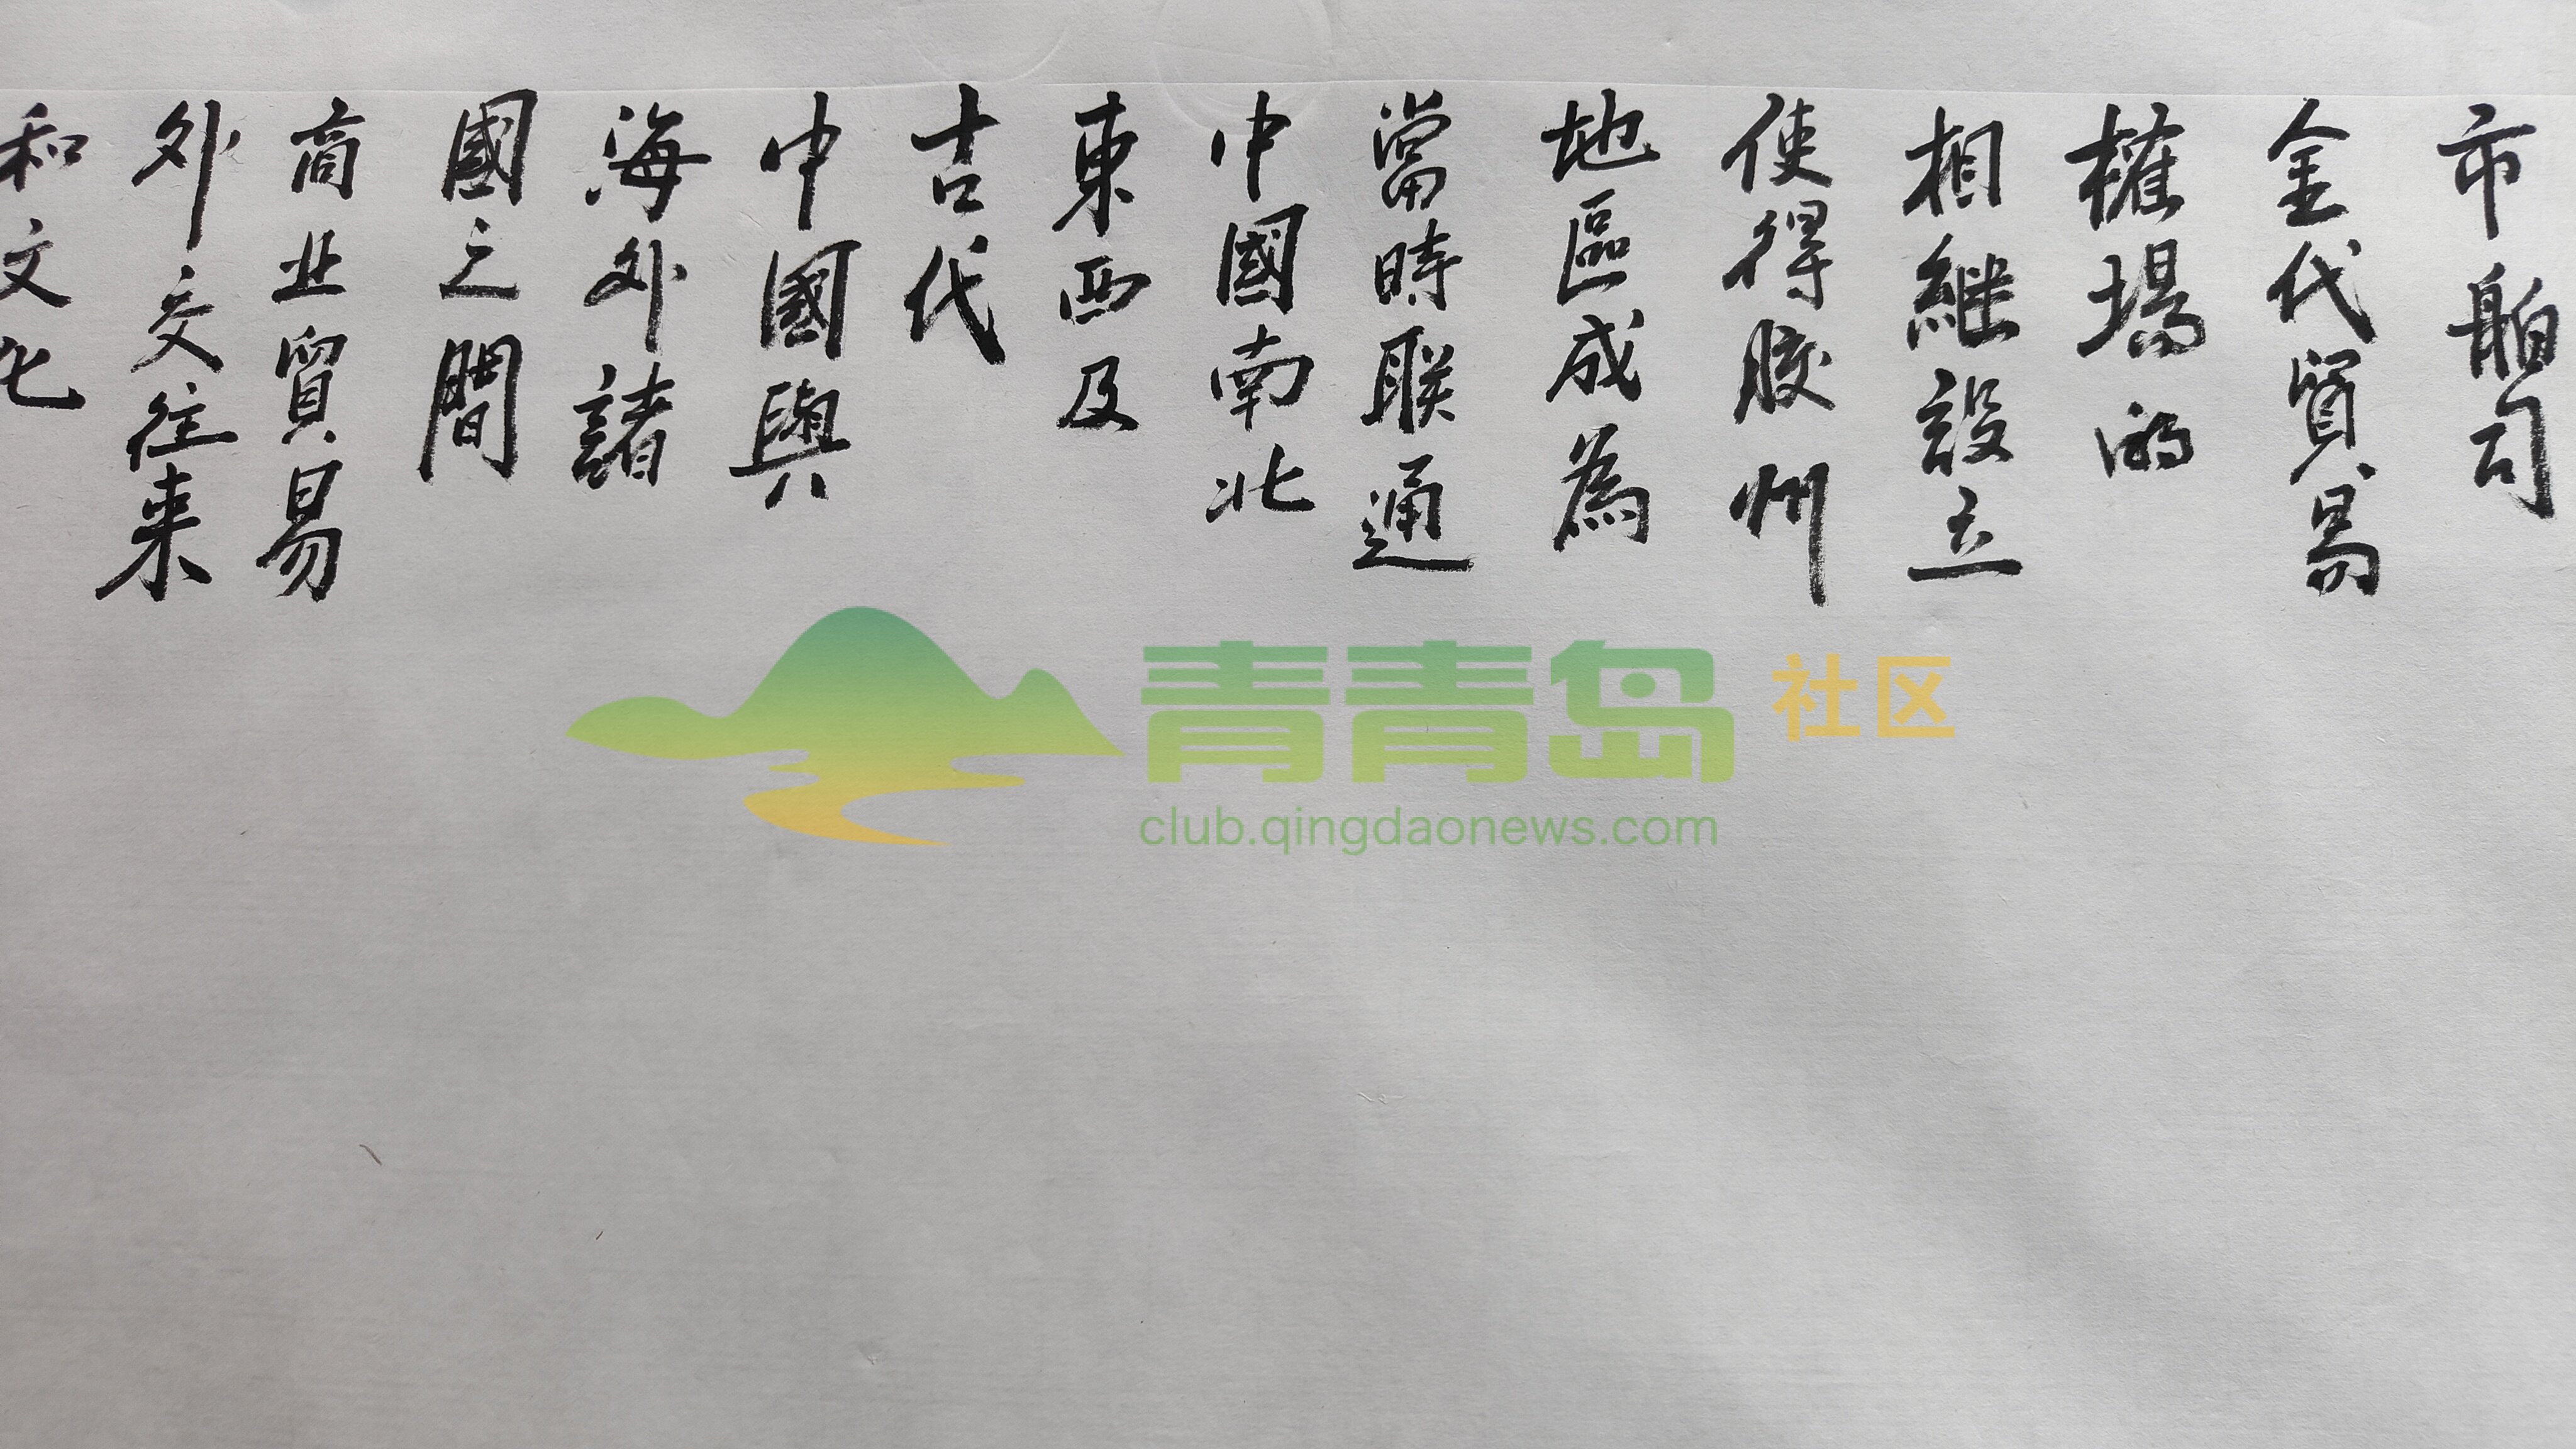 市舶司
金代貿易
榷場的
相継設立
使得胶州
地區成為
當時联通
中國南北
東西及
古代
中國與
海外諸
國之間
商业貿易
外交往来
和文化
青青岛社区
club.qingdaonews.com